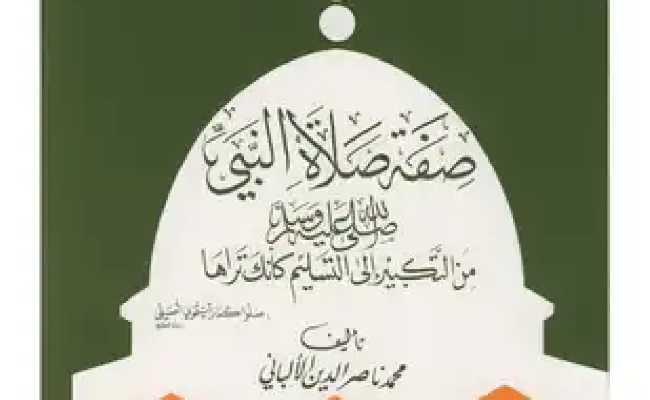 صِفَة صَلَاةِ النَّبِيِّ
صَلَّى اللَّهُ عَلَيْهِ وَسَلَّم
مِنَ التَّكْبِيرِ إِلَى التَّسْلِيمِ كَأَنَّكَ تَرَاهَا
صلوا كما رأيتموني أصلي
تأليف
محمد ناصر الدين الألباني